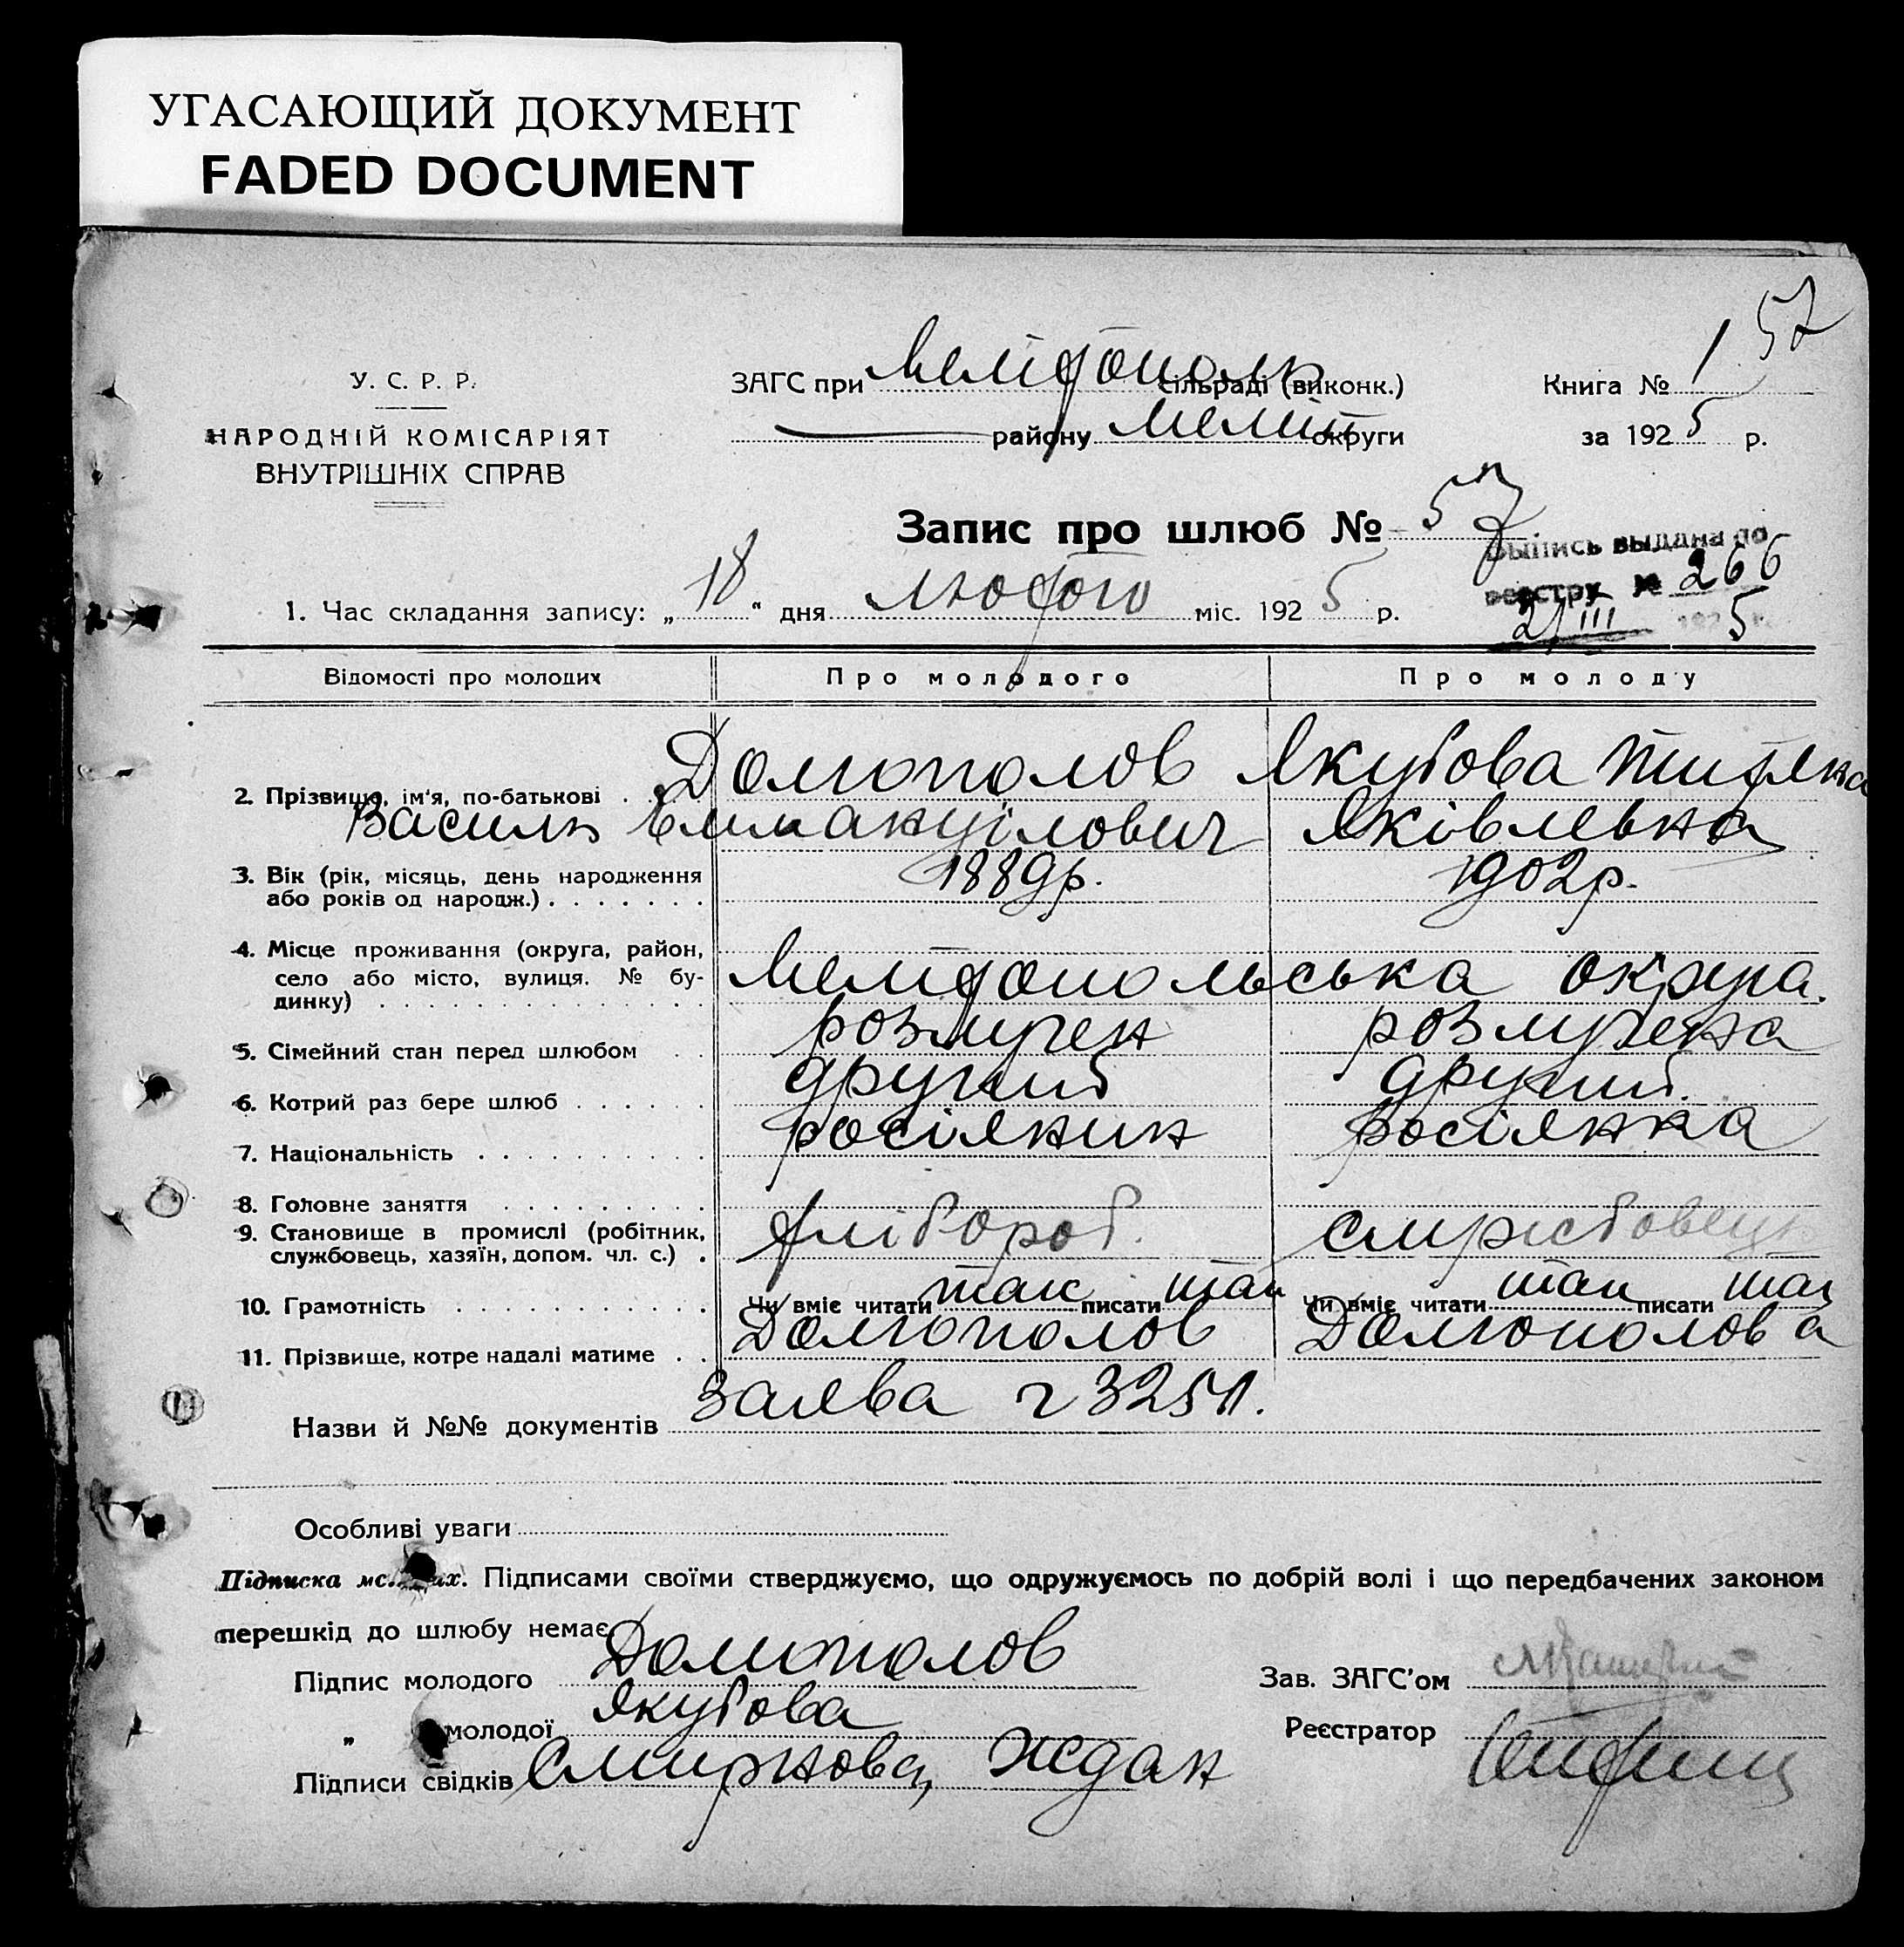 УГАСАЮЩИЙ ДОКУМЕНТ
FADED DOCUMENT
57
У. С. Р. Р.
НАРОДНІЙ КОМІСАРІЯТ
ВНУТРІШНІХ СПРАВ
ЗАГС при Мелітополь сільраді (виконк.)
району Меліт округи
Книга № 1
за 1925 р.
Запис про шлюб № 57
Выпись выдана по
реестру № 266
21/III 1925 г.
1. Час складання запису: „18“ дня лютого міс. 1925 р.
Відомості про молодих Про молодого Про молоду
2. Прізвище, ім'я, по-батькові . Долгополов Якубова
Василь Яківлевна
3. Вік (рік, місяць, день народження
або років од народж.) . . . . . . . 1889р. 1902р.
4. Місце проживання (округа, район,
село або місто, вулиця. № бу-
динку) . . . . . . . . . . . . . . Мелітопольська округа.
5. Сімейний стан перед шлюбом . . розлучен розлучена
6. Котрий раз бере шлюб . . . . . . другий другий.
7. Національність . . . . . . . . . . росіянин росіянка
8. Головне заняття . . . . . . . . .
9. Становище в промислі (робітник,
службовець, хазяїн, допом. чл. с.) . хлібороб. службовець
10. Грамотність . . . . . . . . . . . . Чи вміє читати так писати так Чи вміє читати так писати так
11. Прізвище, котре надалі матиме . . Долгополов Долгополова
Назви й №№ документів заява ч 3251.
Особливі уваги
Підписка молодих. Підписами своїми стверджуємо, що одружуємось по добрій волі і що передбачених законом
перешкід до шлюбу немає.
Підпис молодого Долгополов
Зав. ЗАГС'ом
„ молодої Якубова
Реєстратор
Підписи свідків Смирнова, Ждан